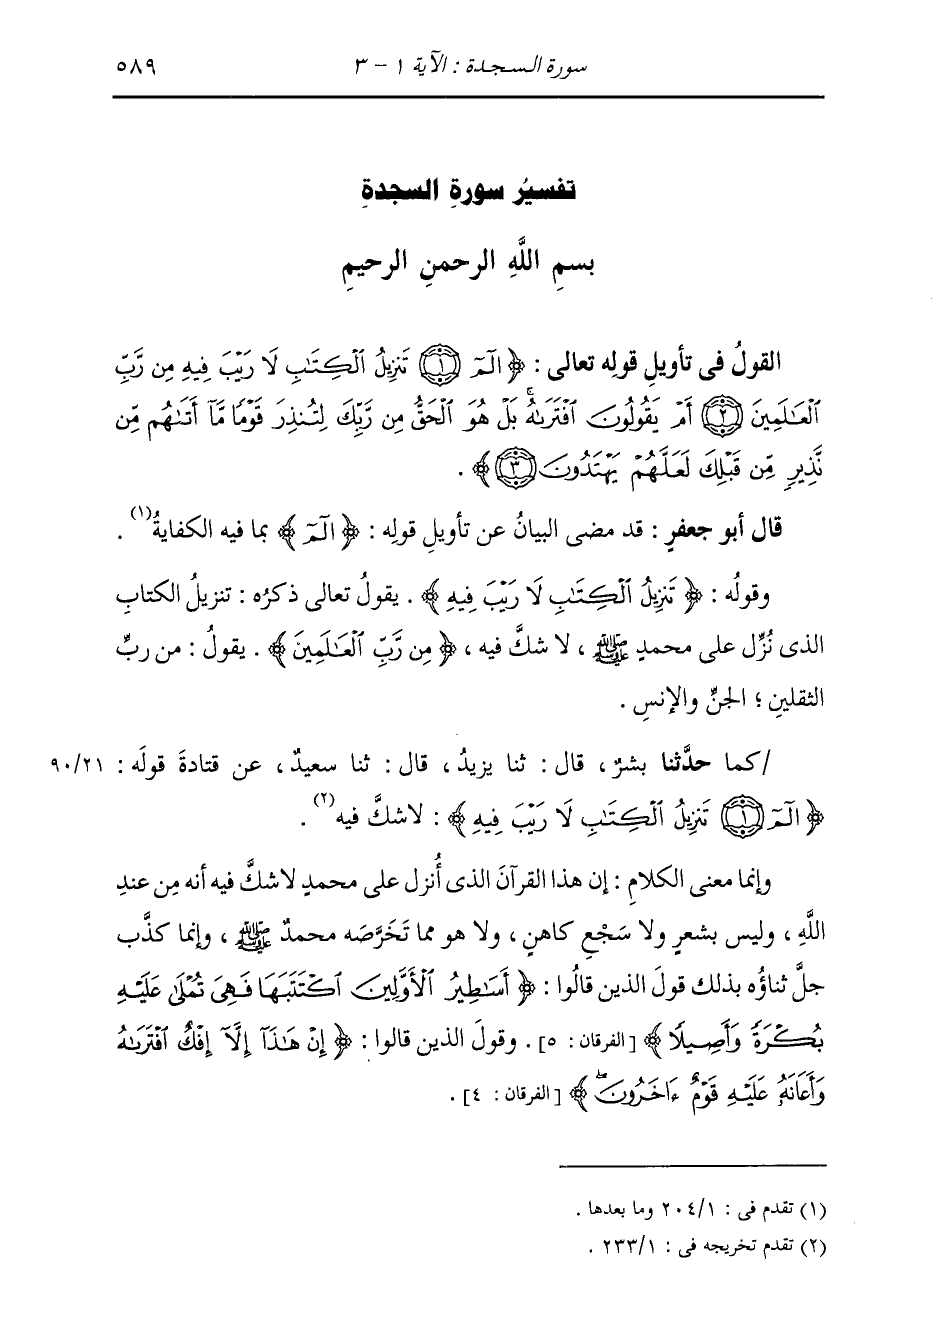 سورة السجدة : الآية ١ - ٣ ٥٨٩
تفسيرُ سورةِ السجدةِ
بسمِ اللَّهِ الرحمنِ الرحيمِ
القولُ فى تأويلِ قولِه تعالى : ﴿ الٓمٓ ١ تَنزِيلُ ٱلْكِتَٰبِ لَا رَيْبَ فِيهِ مِن رَّبِّ
ٱلْعَٰلَمِينَ ٢ أَمْ يَقُولُونَ ٱفْتَرَىٰهُ ۚ بَلْ هُوَ ٱلْحَقُّ مِن رَّبِّكَ لِتُنذِرَ قَوْمًا مَّآ أَتَىٰهُم مِّن
نَّذِيرٍ مِّن قَبْلِكَ لَعَلَّهُمْ يَهْتَدُونَ ٣ ﴾ .
قال أبو جعفرٍ : قد مضى البيانُ عن تأويلِ قولِه : ﴿ الٓمٓ ﴾ بما فيه الكفايةُ(١) .
وقولُه : ﴿ تَنزِيلُ ٱلْكِتَٰبِ لَا رَيْبَ فِيهِ ﴾ . يقولُ تعالى ذكرُه : تنزيلُ الكتابِ
الذى نُزِّل على محمدٍ ﷺ ، لا شكَّ فيه ، ﴿ مِن رَّبِّ ٱلْعَٰلَمِينَ ﴾ . يقولُ : من ربِّ
الثقلينِ ؛ الجنِّ والإنسِ .
/كما حدَّثنا بشرٌ ، قال : ثنا يزيدُ ، قال : ثنا سعيدٌ ، عن قتادةَ قولَه : ٩٠/٢١
﴿ الٓمٓ ١ تَنزِيلُ ٱلْكِتَٰبِ لَا رَيْبَ فِيهِ ﴾ : لا شكَّ فيه(٢) .
وإنما معنى الكلامِ : إن هذا القرآنَ الذى أُنزل على محمدٍ لا شكَّ فيه أنه مِن عندِ
اللَّهِ ، وليس بشعرٍ ولا سَجْعِ كاهنٍ ، ولا هو مما تَخَرَّصه محمدٌ ﷺ ، وإنما كذَّب
جلَّ ثناؤُه بذلك قولَ الذين قالُوا : ﴿ أَسَٰطِيرُ ٱلْأَوَّلِينَ ٱكْتَتَبَهَا فَهِىَ تُمْلَىٰ عَلَيْهِ
بُكْرَةً وَأَصِيلًا ﴾ [الفرقان : ٥] . وقولَ الذين قالوا : ﴿ إِنْ هَٰذَآ إِلَّآ إِفْكٌ ٱفْتَرَىٰهُ
وَأَعَانَهُۥ عَلَيْهِ قَوْمٌ ءَاخَرُونَ ۖ ﴾ [الفرقان : ٤] .
(١) تقدم فى : ٢٠٤/١ وما بعدها .
(٢) تقدم تخريجه فى : ٢٣٣/١ .